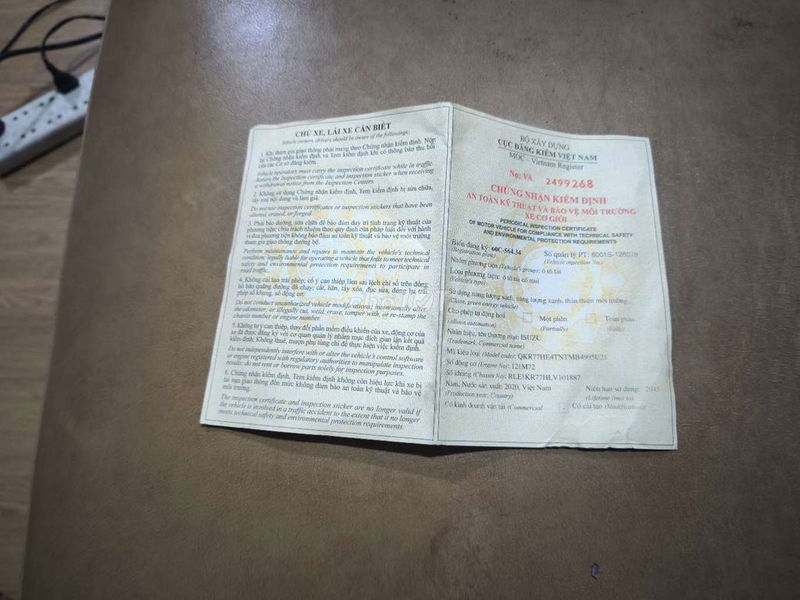 CHỦ XE, LÁI XE CẦN BIẾT
Vehicle owners, drivers should be aware of the followings:
1. Khi tham gia giao thông phải mang theo Chứng nhận kiểm định. Nộp
lại Chứng nhận kiểm định và Tem kiểm định khi có thông báo thu hồi
của các Cơ sở đăng kiểm.
Vehicle operators must carry the inspection certificate while in traffic.
Return the inspection certificate and inspection sticker when receiving
a withdrawal notice from the Inspection Centers.
2. Không sử dụng Chứng nhận kiểm định, Tem kiểm định bị sửa chữa,
tẩy xóa nội dung và làm giả.
Do not use inspection certificates or inspection stickers that have been
altered, erased, or forged.
3. Phải bảo dưỡng, sửa chữa để bảo đảm duy trì tình trạng kỹ thuật của
phương tiện; chịu trách nhiệm theo quy định của pháp luật đối với hành
vi đưa phương tiện không bảo đảm an toàn kỹ thuật và bảo vệ môi trường
tham gia giao thông đường bộ.
Perform maintenance and repairs to maintain the vehicle's technical
condition; legally liable for operating a vehicle that fails to meet technical
safety and environmental protection requirements to participate in
road traffic.
4. Không cải tạo trái phép; cố ý can thiệp làm sai lệch chỉ số trên đồng
hồ báo quãng đường đã chạy; cắt, hàn, tẩy xóa, đục sửa, đóng lại trái
phép số khung, số động cơ.
Do not conduct unauthorized vehicle modifications; intentionally alter
the odometer; or illegally cut, weld, erase, tamper with, or re-stamp the
chassis number or engine number.
5. Không tự ý can thiệp, thay đổi phần mềm điều khiển của xe, động cơ của
xe đã được đăng ký với cơ quan quản lý nhằm mục đích gian lận kết quả
kiểm định; Không thuê, mượn phụ tùng chỉ để thực hiện việc kiểm định.
Do not independently interfere with or alter the vehicle's control software
or engine registered with regulatory authorities to manipulate inspection
result; do not rent or borrow parts solely for inspection purposes.
6. Chứng nhận kiểm định, Tem kiểm định không còn hiệu lực khi xe bị
tai nạn giao thông đến mức không đảm bảo an toàn kỹ thuật và bảo vệ
môi trường.
The inspection certificate and inspection sticker are no longer valid if
the vehicle is involved in a traffic accident to the extent that it no longer
meets technical safety and environmental protection requirements.
BỘ XÂY DỰNG
CỤC ĐĂNG KIỂM VIỆT NAM
MOC - Vietnam Register
No: VA 2499268
CHỨNG NHẬN KIỂM ĐỊNH
AN TOÀN KỸ THUẬT VÀ BẢO VỆ MÔI TRƯỜNG
XE CƠ GIỚI
PERIODICAL INSPECTION CERTIFICATE
OF MOTOR VEHICLE FOR COMPLIANCE WITH TECHNICAL SAFETY
AND ENVIRONMENTAL PROTECTION REQUIREMENTS
Biển đăng ký: 60C-564.34 Số quản lý PT: 6001S-128028
(Registration plate) (Vehicle inspection No.)
Nhóm phương tiện (Vehicle's group): ô tô tải
Loại phương tiện: ô tô tải có mui
(Vehicle's type)
Sử dụng năng lượng sạch, năng lượng xanh, thân thiện môi trường
(Clean, green energy vehicle)
Cho phép tự động hoá Một phần Toàn phần
(Allows automation) (Partially) (Fully)
Nhãn hiệu, tên thương mại: ISUZU
(Trademark, Commercial name)
Mã kiểu loại (Model code): QKR77HE4TNTMB4995U21
Số động cơ (Engine No): 121M72
Số khung (Chassis No): RLE1KR77HLV101887
Năm, Nước sản xuất: 2020, Việt Nam Niên hạn sử dụng: 2045
(Production year, Country) (Lifetime limit to)
Có kinh doanh vận tải (Commercial Có cải tạo (Modification)